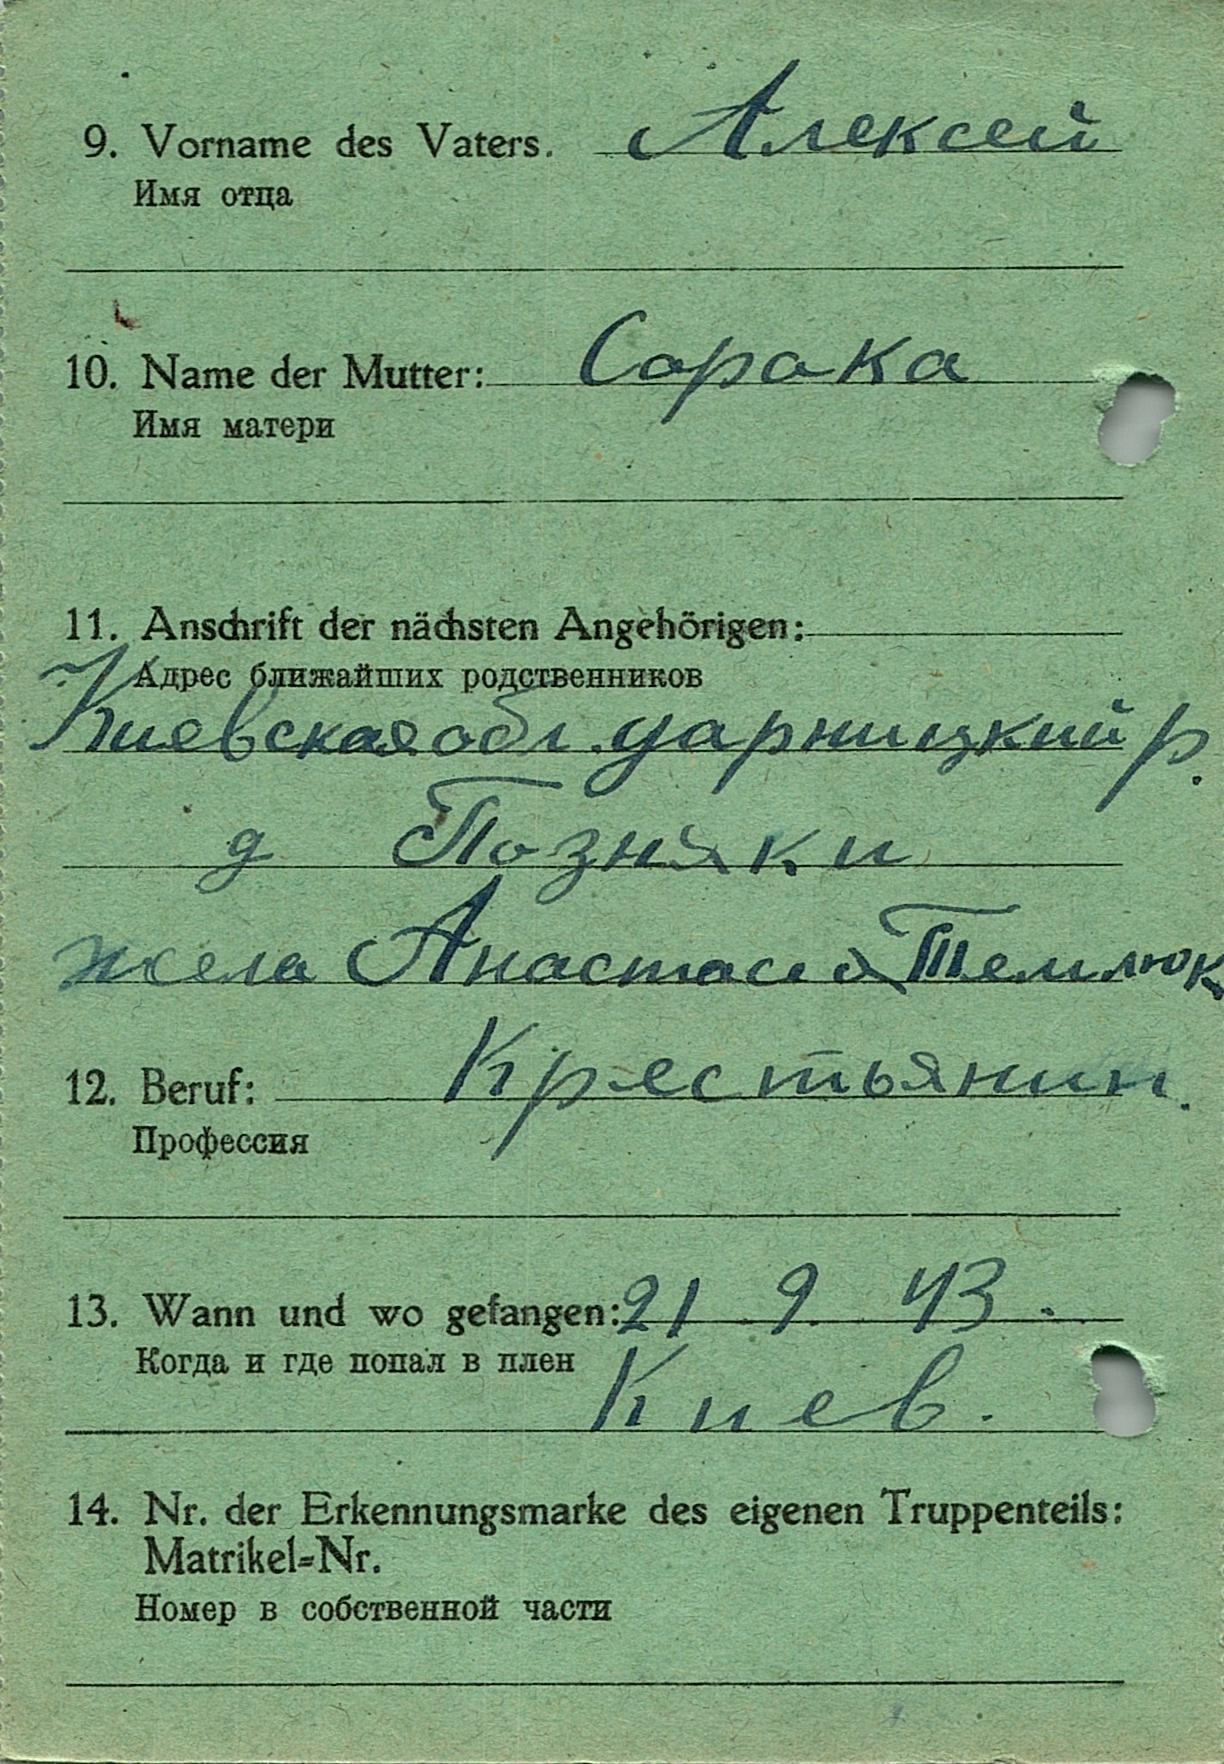 9. Vorname des Vaters. Алексей
Имя отца
10. Name der Mutter: Сорока
Имя матери
11. Anschrift der nächsten Angehörigen:
Адрес ближайших родственников
Киевская обл. дарницкий р.
д Позняки
жена Анастасия Темлюк
12. Beruf: Крестьянин.
Профессия
13. Wann und wo gefangen: 21 9. 43.
Когда и где попал в плен
Киев.
14. Nr. der Erkennungsmarke des eigenen Truppenteils:
Matrikel=Nr.
Номер в собственной части